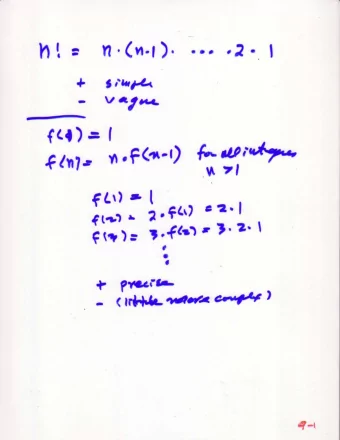 n! = n·(n-1)· ... ·2·1
+ simple
- vague
f(1) = 1
f(n) = n·f(n-1) for all integers
n > 1
f(1) = 1
f(2) = 2·f(1) = 2·1
f(3) = 3·f(2) = 3·2·1
⋮
+ precise
- (little more complex)
9-1